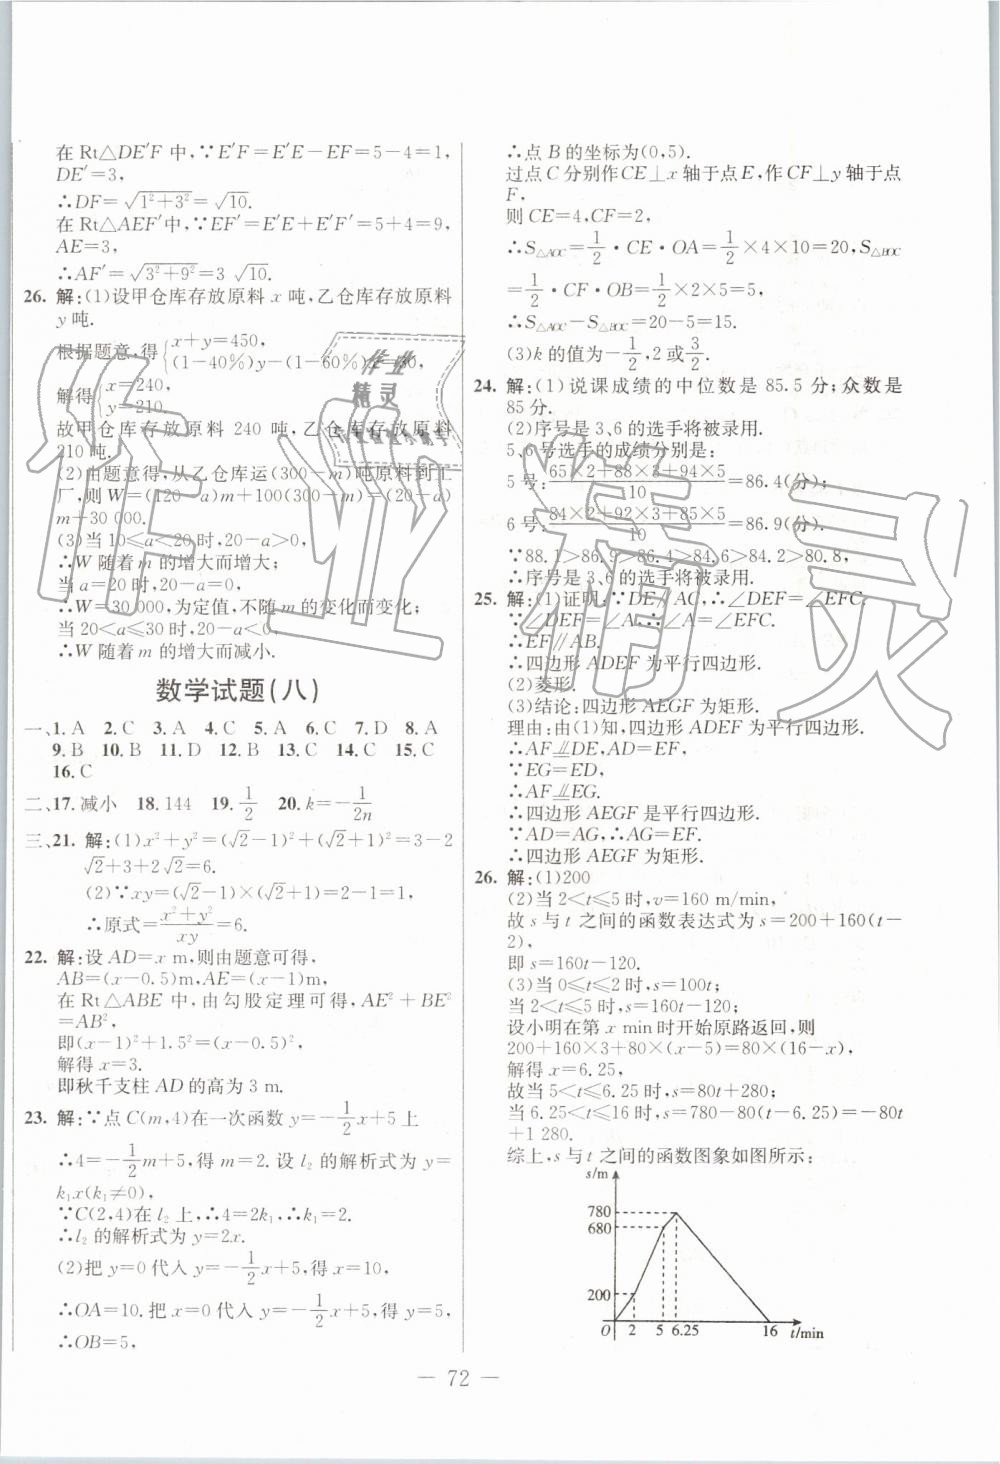 在 Rt△DE′F 中,∵E′F=E′E−EF=5−4=1,
DE′=3,
∴DF=√(1²+3²)=√10.
在 Rt△AEF′中,∵EF′=E′E+E′F′=5+4=9,
AE=3,
∴AF′=√(3²+9²)=3 √10.
26. 解:(1)设甲仓库存放原料 x 吨,乙仓库存放原料
y 吨.
根据题意,得{x+y=450,
(1−40%)y−(1−60%)x=30,
解得{x=240,
y=210.
故甲仓库存放原料 240 吨,乙仓库存放原料
210 吨.
(2)由题意得,从乙仓库运(300−m)吨原料到工
厂,则 W=(120−a)m+100(300−m)=(20−a)
m+30 000.
(3)当 10≤a<20时,20−a>0,
∴W 随着 m 的增大而增大;
当 a=20时,20−a=0,
∴W=30 000,为定值,不随 m 的变化而变化;
当 20<a≤30 时,20−a<0,
∴W 随着 m 的增大而减小.
数学试题(八)
一、1. A 2. C 3. A 4. C 5. A 6. C 7. D 8. A
9. B 10. B 11. D 12. B 13. C 14. C 15. C
16. C
二、17. 减小 18. 144 19. 1/2 20. k=−1/2n
三、21. 解:(1)x²+y²=(√2−1)²+(√2+1)²=3−2
√2+3+2 √2=6.
(2)∵xy=(√2−1)×(√2+1)=2−1=1,
∴原式=(x²+y²)/xy=6.
22. 解:设 AD=x m,则由题意可得,
AB=(x−0.5)m,AE=(x−1)m,
在 Rt△ABE 中,由勾股定理可得,AE²+BE²
=AB²,
即(x−1)²+1.5²=(x−0.5)²,
解得 x=3.
即秋千支柱 AD 的高为 3 m.
23. 解:∵点 C(m,4)在一次函数 y=−1/2x+5 上
∴4=−1/2m+5,得 m=2. 设 l₂ 的解析式为 y=
k₁x(k₁≠0),
∵C(2,4)在 l₂ 上,∴4=2k₁,∴k₁=2.
∴l₂ 的解析式为 y=2x.
(2)把 y=0 代入 y=−1/2x+5,得 x=10,
∴OA=10. 把 x=0 代入 y=−1/2x+5,得 y=5,
∴OB=5,
∴点 B 的坐标为(0,5).
过点 C 分别作 CE⊥x 轴于点 E,作 CF⊥y 轴于点
F,
则 CE=4,CF=2,
∴S△AOC=1/2·CE·OA=1/2×4×10=20,S△BOC
=1/2·CF·OB=1/2×2×5=5,
∴S△AOC−S△BOC=20−5=15.
(3)k 的值为−1/2,2 或3/2.
24. 解:(1)说课成绩的中位数是 85.5 分;众数是
85 分.
(2)序号是 3、6 的选手将被录用.
5、6 号选手的成绩分别是:
5 号:(65×2+88×3+94×5)/10=86.4(分);
6 号:(84×2+92×3+85×5)/10=86.9(分).
∵88.1>86.9>86.4>84.6>84.2>80.8,
∴序号是 3、6 的选手将被录用.
25. 解:(1)证明:∵DE∥AC,∴∠DEF=∠EFC.
∵∠DEF=∠A,∴∠A=∠EFC.
∴EF∥AB.
∴四边形 ADEF 为平行四边形.
(2)菱形.
(3)结论:四边形 AEGF 为矩形.
理由:由(1)知,四边形 ADEF 为平行四边形.
∴AF⫫DE,AD=EF,
∵EG=ED,
∴AF⫫EG.
∴四边形 AEGF 是平行四边形.
∵AD=AG,∴AG=EF.
∴四边形 AEGF 为矩形.
26. 解:(1)200
(2)当 2<t≤5 时,v=160 m/min,
故 s 与 t 之间的函数表达式为 s=200+160(t−
2),
即 s=160t−120.
(3)当 0≤t≤2 时,s=100t;
当 2<t≤5 时,s=160t−120;
设小明在第 x min 时开始原路返回,则
200+160×3+80×(x−5)=80×(16−x),
解得 x=6.25,
故当 5<t≤6.25 时,s=80t+280;
当 6.25<t≤16 时,s=780−80(t−6.25)=−80t
+1 280.
综上,s 与 t 之间的函数图象如图所示:
s/m
780
680
200
O 2 5 6.25 16 t/min
— 72 —
作业精灵
作业
精灵